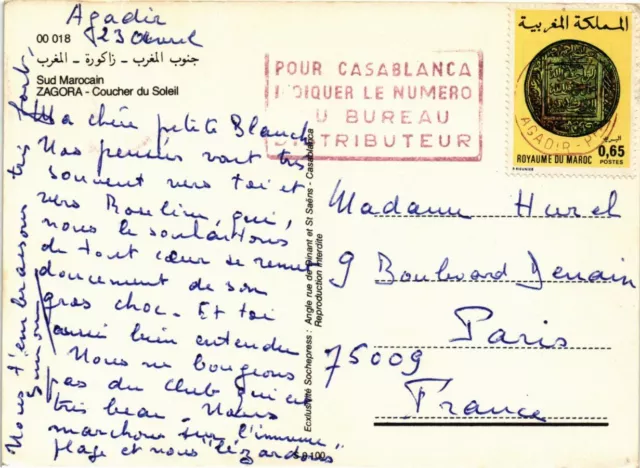 Agadir
23 Avril
00 018
جنوب المغرب - زاكورة - المغرب
Sud Marocain
ZAGORA - Coucher du Soleil
Ma chère petite Blanche
Nos pensées vont très
souvent vers toi et
vers qui,
nous le souhaitons
de tout cœur se remet
doucement de son
gros choc. Et toi
aussi bien entendu
Nous ne bougeons
pas du Club qui est
très beau. Nous
marchons sur l'immense
plage et nous lézardons
Nous t'embrassons très fort,
Simone
POUR CASABLANCA
INDIQUER LE NUMERO
DU BUREAU
DISTRIBUTEUR
المملكة المغربية
AGADIR-P
البريد
0,65
ROYAUME DU MAROC
POSTES
Exclusivité Sochepress : Angle rue de Dinant et St Saëns - Casablanca
Reproduction interdite
Madame Hurel
9 Boulevard Denain
Paris
75009
France